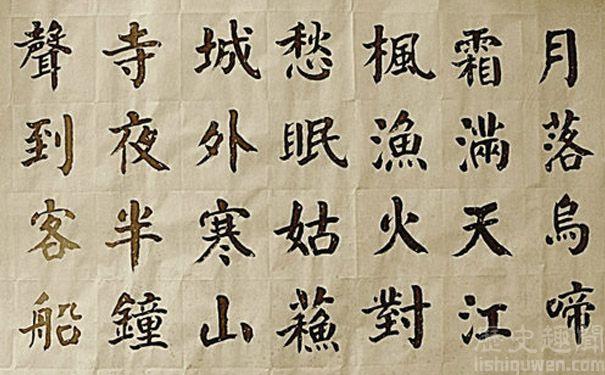 月落烏啼
霜滿天江
楓漁火對
愁眠姑蘓
城外寒山
寺夜半鐘
聲到客船
歷史趣聞
lishiquwen.com